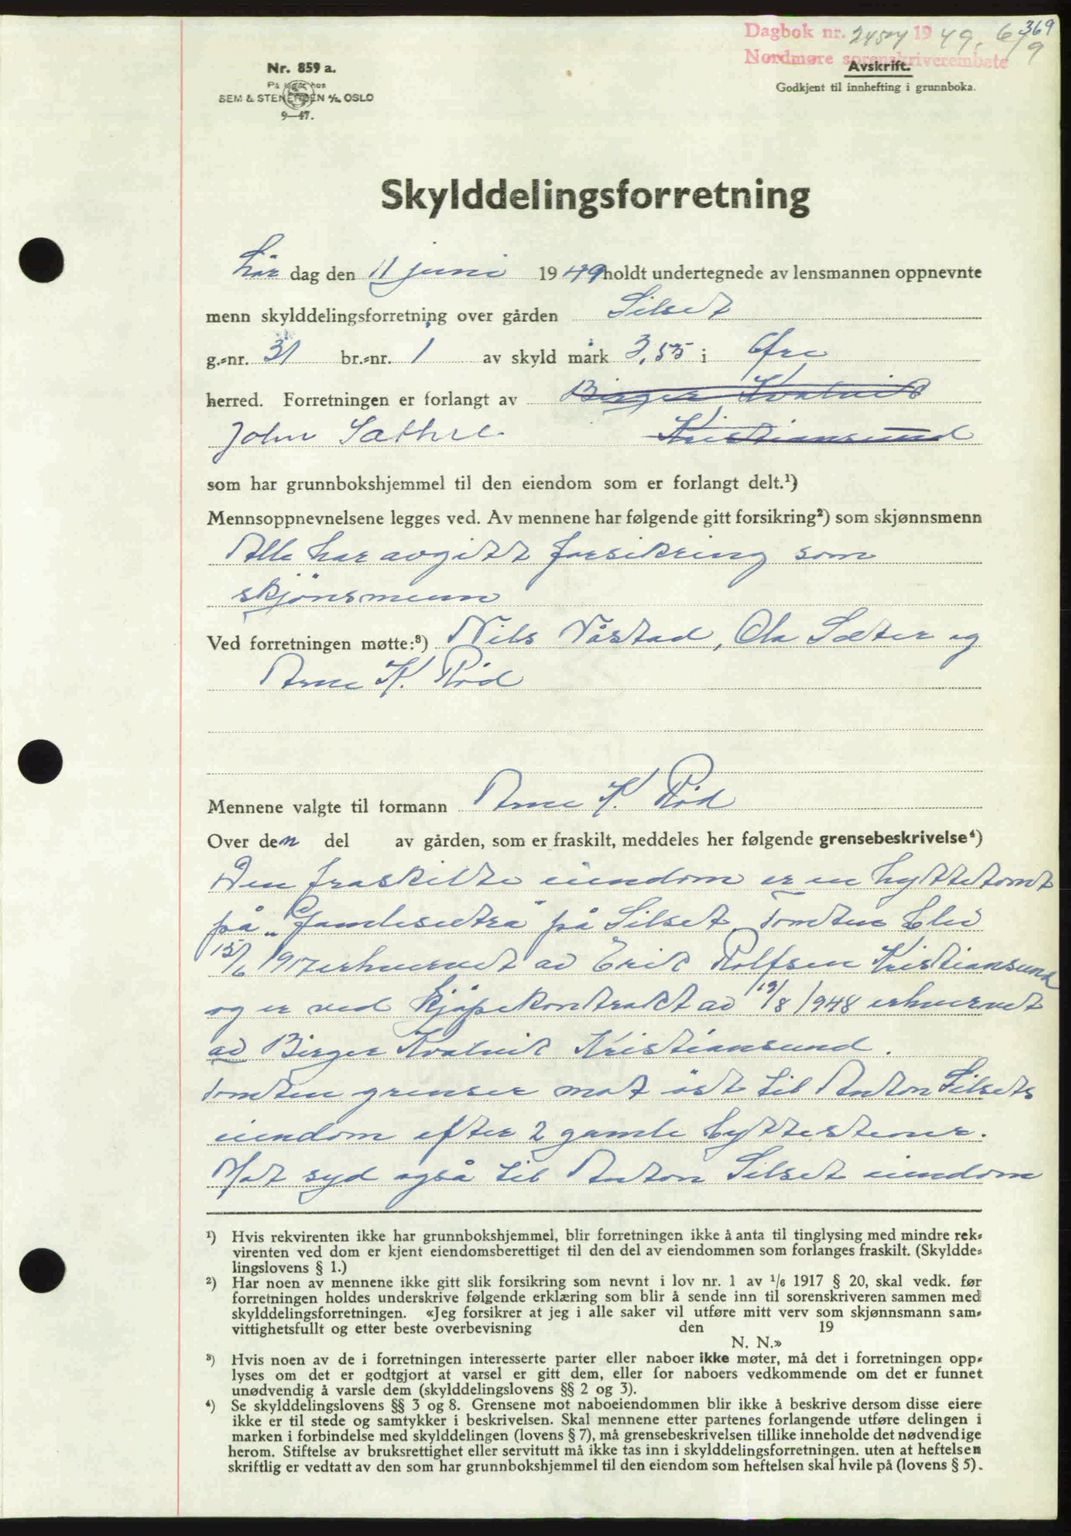 369
Dagbok nr. 2457 1949. 6/9
Nordmøre sorenskriverembete
Nr. 859 a.
På lager hos
SEM & STENERSEN A/S OSLO
9—47.
Avskrift.
Godkjent til innhefting i grunnboka.
Skylddelingsforretning
Lør dag den 11 juni 1949 holdt undertegnede av lensmannen oppnevnte
menn skylddelingsforretning over gården Silset
g.-nr. 31 br.-nr. 1 av skyld mark 3,55 i Øre
herred. Forretningen er forlangt av Birger Kvalvik
John Sæthre Kristiansund
som har grunnbokshjemmel til den eiendom som er forlangt delt.¹)
Mennsoppnevnelsene legges ved. Av mennene har følgende gitt forsikring²) som skjønnsmenn
Alle har avgitt forsikring som
skjönsmenn
Ved forretningen møtte:³) Nils Våstad, Ola Sæter og
Arne K. Rød
Mennene valgte til formann Arne K. Rød
Over den del av gården, som er fraskilt, meddeles her følgende grensebeskrivelse⁴)
Den fraskilte eiendom er en hyttetomt
på „Gamlesetra" på Silset. Tomten blev
15/6 1917 erhvervet av Erik Rolfsen Kristiansund
og er ved kjøpekontrakt av 19/8 1948 erhvervet
av Birger Kvalvik Kristiansund.
Tomten grenser mot öst til Anton Silsets
eiendom efter 2 gamle byttestener.
Mot syd også til Anton Silset eiendom
¹) Hvis rekvirenten ikke har grunnbokshjemmel, blir forretningen ikke å anta til tinglysing med mindre rek-
virenten ved dom er kjent eiendomsberettiget til den del av eiendommen som forlanges fraskilt. (Skyldde-
lingslovens § 1.)
²) Har noen av mennene ikke gitt slik forsikring som nevnt i lov nr. 1 av 1/6 1917 § 20, skal vedk. før
forretningen holdes underskrive følgende erklæring som blir å sende inn til sorenskriveren sammen med
skylddelingsforretningen. «Jeg forsikrer at jeg i alle saker vil utføre mitt verv som skjønnsmann sam-
vittighetsfullt og etter beste overbevisning den 19
N. N.»
³) Hvis noen av de i forretningen interesserte parter eller naboer ikke møter, må det i forretningen opp-
lyses om det er godtgjort at varsel er gitt dem, eller for naboers vedkommende om det er funnet
unødvendig å varsle dem (skylddelingslovens §§ 2 og 3).
⁴) Se skylddelingslovens §§ 3 og 8. Grensene mot naboeiendommen blir ikke å beskrive dersom disse eiere
ikke er til stede og samtykker i beskrivelsen. Skal mennene etter partenes forlangende utføre delingen i
marken i forbindelse med skylddelingen (lovens § 7), må grensebeskrivelsen tillike inneholde det nødvendige
herom. Stiftelse av bruksrettighet eller servitutt må ikke tas inn i skylddelingsforretningen. uten at heftelsen
skriftlig er vedtatt av den som har grunnbokshjemmel til den eiendom som heftelsen skal hvile på (lovens § 5).